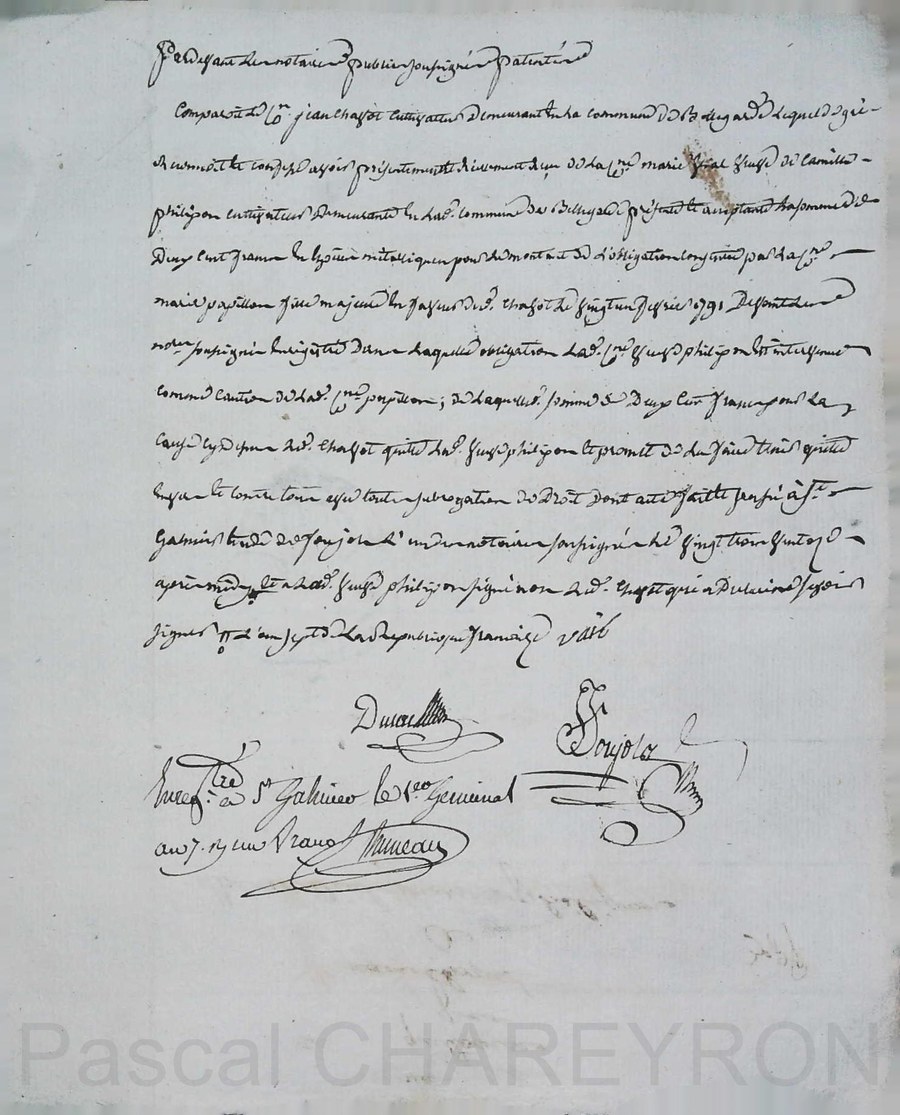 Pardevant les notaires publics soussignés Patentés
Comparoit le Con. jean chazot cultivateur Demeurant en la commune de Bellegarde Lequel de gré
reconnoit et confesse avoir présentement et réellement reçu de la Cne marie vial veuve de Camille
philipon cultivateur demeurante en lade. commune de Bellegarde présente et acceptante la somme de
Deux cent francs En Espèces métalliques pour le montant de L'obligation consentie par la Cne
marie papillon fille majeure En faveur dud. chazot le vingt un février 1791 Devant le
notre soussigné Enregistré Dans Laquelle obligation Lade. Cne veuve philipon Est intervenue
comme Caution de Lade. Cne papillon; de Laquelle somme de Deux Cent francs pour La
Cause cy dessus led. chazot quitte Lade. veuve philipon et promet de La faire tenir quitte
Envers et contre tous avec toute subrogation de Droit Dont acte fait et passé à St.
Galmier Etude de Foujols L'un des notaires soussignés le vingt trois ventose
après midy et a Lade. veuve philipon signé non led. chazot qui a Declaré ne sçavoir
signer L'an sept de La République française
Foujols
Enregtré à St Galmier le 1er Germinal
an 7. un franc
Pascal CHAREYRON